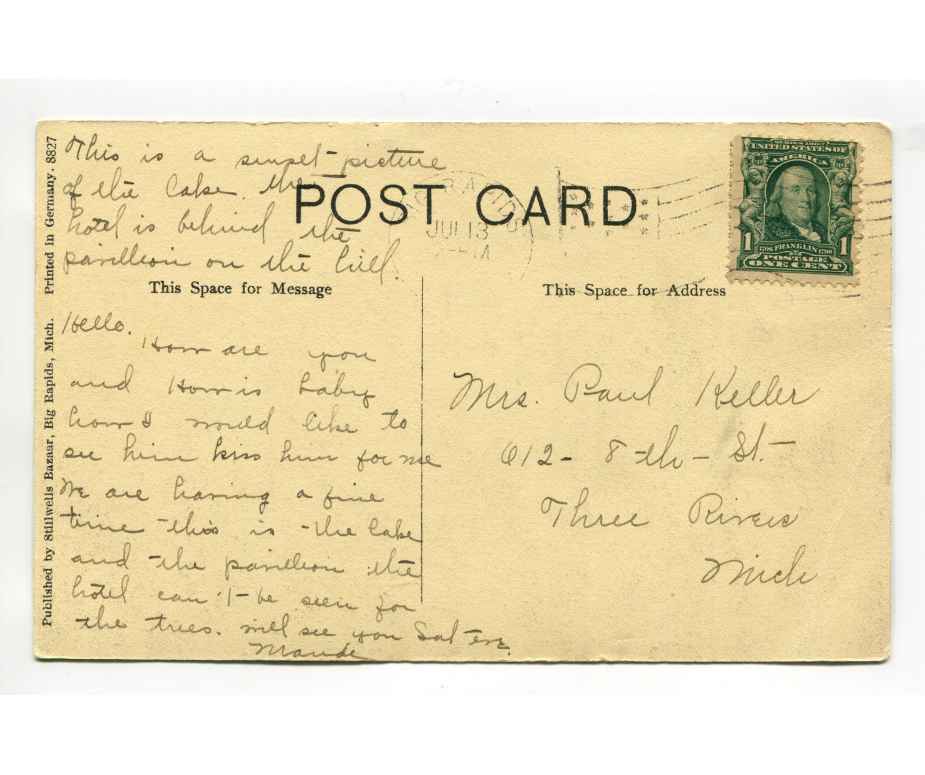 This is a sunset picture
of the Lake the
hotel is behind the
pavillion on the hill.
POST CARD
This Space for Message
This Space for Address
Hello.
How are you
and How is baby
how I would like to
see him kiss him for me
We are having a fine
time this is the Lake
and the pavillion the
hotel can't be seen for
the trees. will see you Sat eve.
Maude
Mrs. Paul Keller
612 - 8-th - St.
Three Rivers
Mich
RAPIDS
JUL 13
UNITED STATES OF
AMERICA
1 1
FRANKLIN
POSTAGE
ONE CENT
Published by Stillwells Bazaar, Big Rapids, Mich. Printed in Germany. 8827